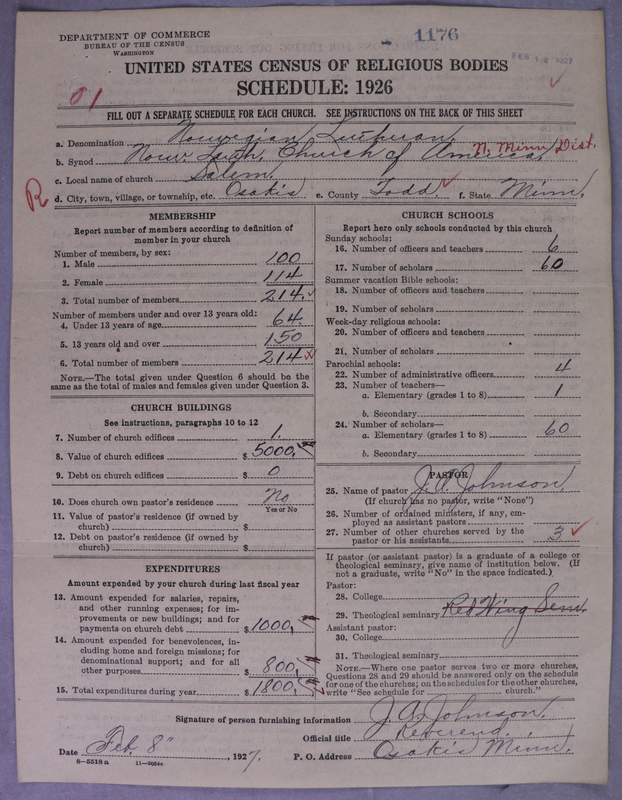 DEPARTMENT OF COMMERCE
BUREAU OF THE CENSUS
WASHINGTON
1176
FEB 12 1927
UNITED STATES CENSUS OF RELIGIOUS BODIES
SCHEDULE: 1926
01
FILL OUT A SEPARATE SCHEDULE FOR EACH CHURCH. SEE INSTRUCTIONS ON THE BACK OF THIS SHEET
a. Denomination Norwegian Lutheran
b. Synod Norw. Luth. Church of America. N. Minn Dist.
c. Local name of church Salem.
R
d. City, town, village, or township, etc. Osakis e. County Todd. f. State Minn.
MEMBERSHIP
Report number of members according to definition of
member in your church
Number of members, by sex:
1. Male 100
2. Female 114
3. Total number of members 214.
Number of members under and over 13 years old:
4. Under 13 years of age 64.
5. 13 years old and over 150
6. Total number of members 214
NOTE.—The total given under Question 6 should be the
same as the total of males and females given under Question 3.
CHURCH BUILDINGS
See instructions, paragraphs 10 to 12
7. Number of church edifices 1.
8. Value of church edifices $ 5000,
9. Debt on church edifices $ 0
10. Does church own pastor's residence No
Yes or No
11. Value of pastor's residence (if owned by
church) $
12. Debt on pastor's residence (if owned by
church) $
EXPENDITURES
Amount expended by your church during last fiscal year
13. Amount expended for salaries, repairs,
and other running expenses; for im-
provements or new buildings; and for
payments on church debt $ 1000,
14. Amount expended for benevolences, in-
cluding home and foreign missions; for
denominational support; and for all
other purposes $ 800,
15. Total expenditures during year $ 1800,
CHURCH SCHOOLS
Report here only schools conducted by this church
Sunday schools:
16. Number of officers and teachers 6
17. Number of scholars 60
Summer vacation Bible schools:
18. Number of officers and teachers
19. Number of scholars
Week-day religious schools:
20. Number of officers and teachers
21. Number of scholars
Parochial schools:
22. Number of administrative officers 4
23. Number of teachers—
a. Elementary (grades 1 to 8) 1
b. Secondary
24. Number of scholars—
a. Elementary (grades 1 to 8) 60
b. Secondary
PASTOR
25. Name of pastor J. A. Johnson,
(If church has no pastor, write "None")
26. Number of ordained ministers, if any, em-
ployed as assistant pastors
27. Number of other churches served by the
pastor or his assistants 3
If pastor (or assistant pastor) is a graduate of a college or
theological seminary, give name of institution below. (If
not a graduate, write "No" in the space indicated.)
Pastor:
28. College
29. Theological seminary Red Wing Sem.
Assistant pastor:
30. College
31. Theological seminary
NOTE.—Where one pastor serves two or more churches,
Questions 28 and 29 should be answered only on the schedule
for one of the churches; on the schedules for the other churches,
write "See schedule for church."
Signature of person furnishing information J. A. Johnson.
Official title Reverend.
Date Feb. 8" , 1927. P. O. Address Osakis Minn.
8—5518 a